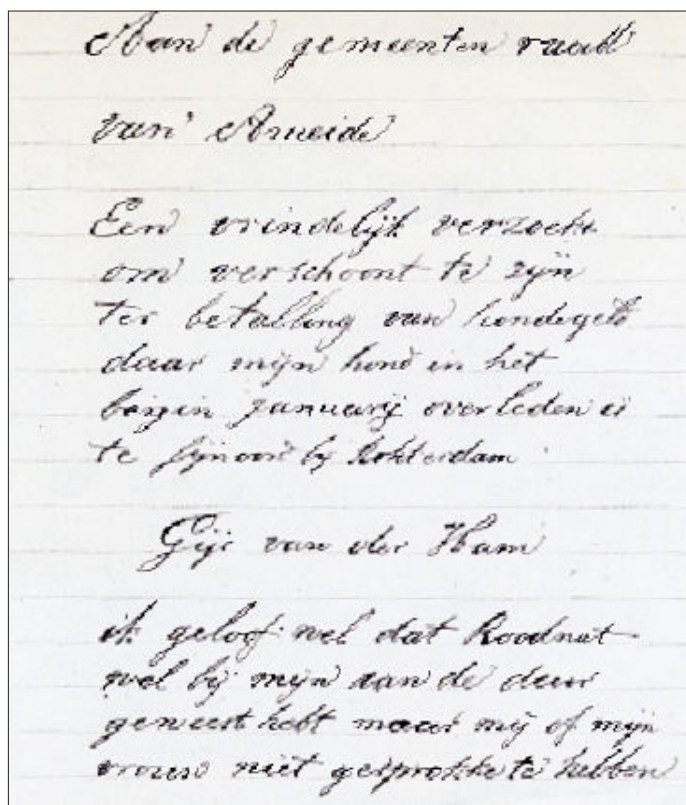 Aan de gemeenten raad
van Ameide
Een vrindelijk verzoekt
om verschoont te zijn
ter betalling van hondegelt
daar mijn hond in het
beigin januarij overleden is
te fijnoort bij Rotterdam
Gijs van der Ham
ik geloof wel dat Roodnat
wel bij mijn aan de deur
geweest hebt maar mij of mijn
vrouw niet gesprokke te hebben